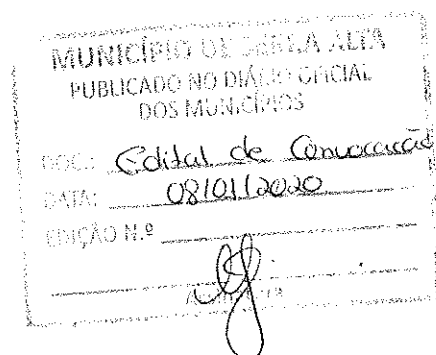 MUNICÍPIO DE SERRA ALTA
PUBLICADO NO DIÁRIO OFICIAL
DOS MUNICÍPIOS
DOC.: Edital de Convocação
DATA: 08/01/2020
EDIÇÃO N.º